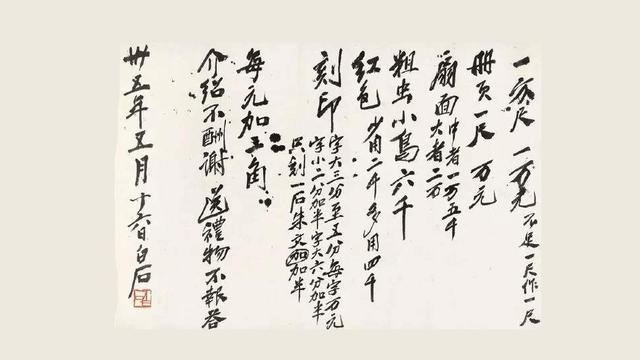 一方尺 一万元 不足一尺作一尺
册页一尺 万元
扇面 中者一万五千
大者二万
粗虫小鸟六千
红色 少用二千多用四千
刻印 字大三分至五分每字万元
字小二分加半字大六分加半
只刻一石朱文加半
每元加五角
介绍不酬谢 送禮物不報答
卅五年五月十六日白石